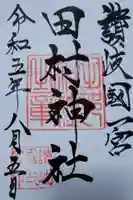 讃岐國一宮
田村神社
令和五年八月五日